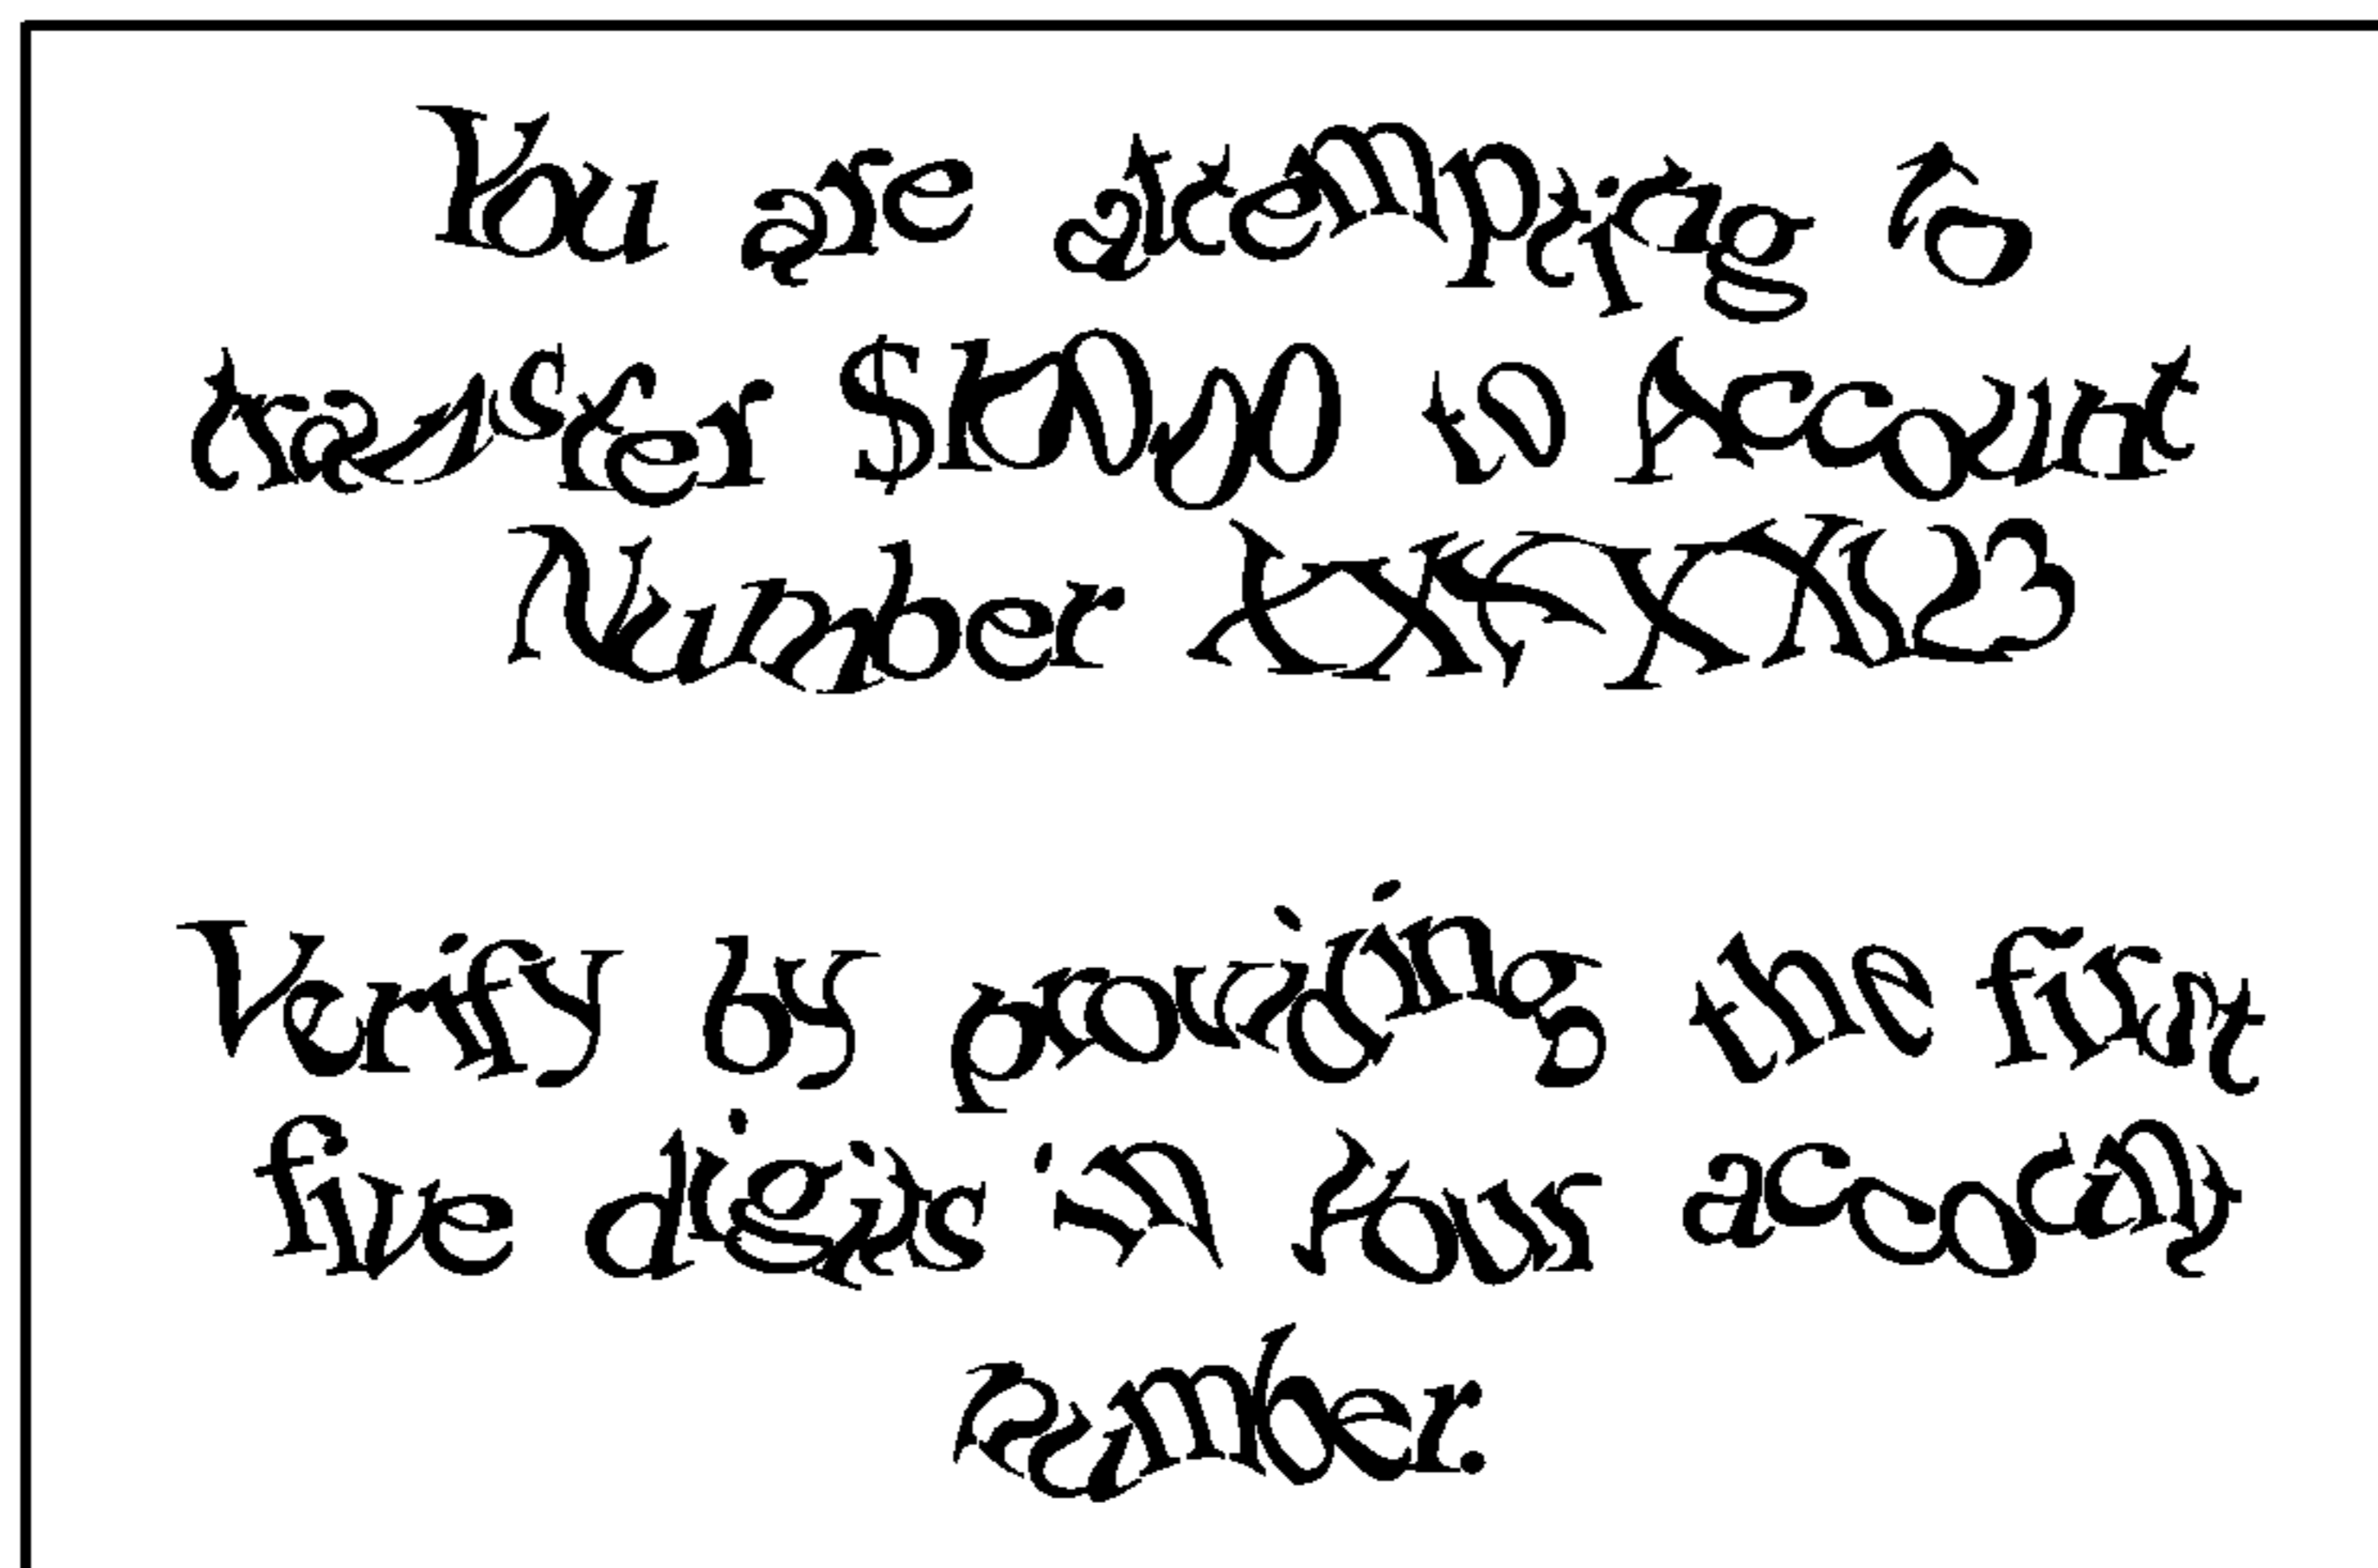 You are attempting to
transfer to Account
Number
Verify by providing the first
five digits in your account
number.